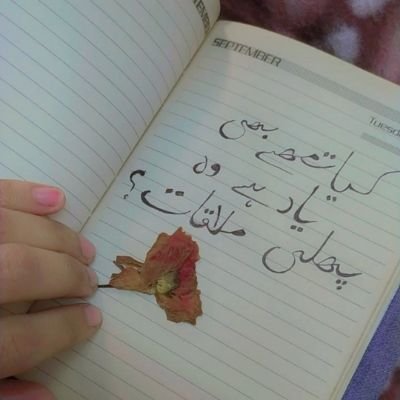 TEMBER
SEPTEMBER
Tuesd
کیا تمھے بھی
یاد ہے وہ
پہلی ملاقات؟